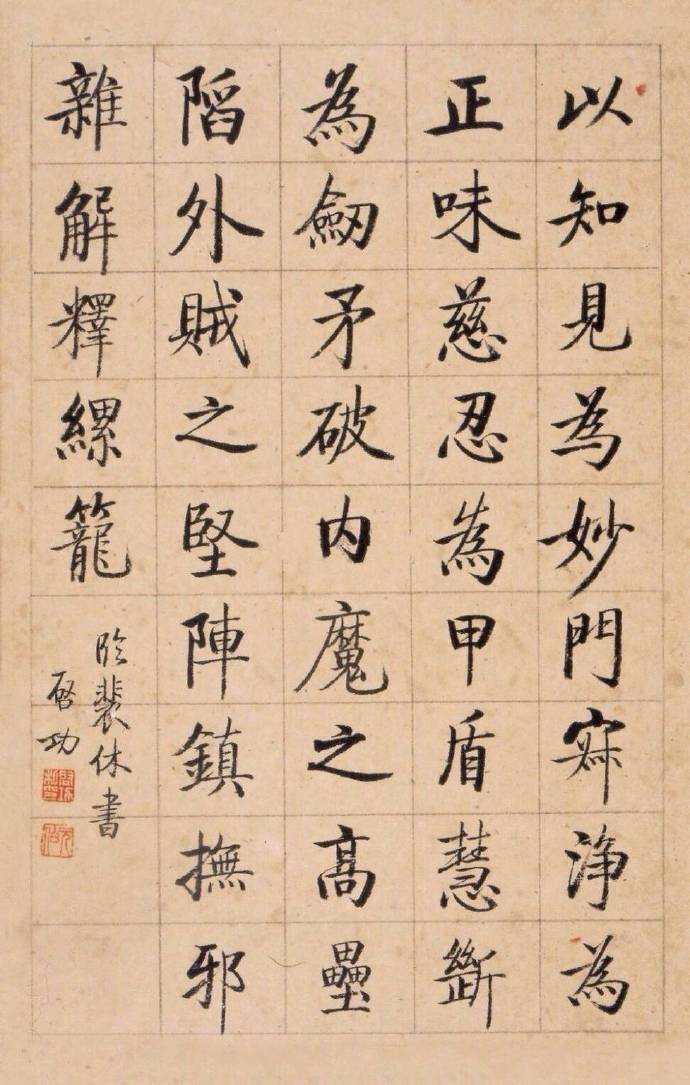 以知見為妙門寂淨為
正味慈忍為甲盾慧斷
為劒矛破内魔之高壘
陷外賊之堅陣鎮撫邪
雜解釋縲籠
臨裴休書
啓功